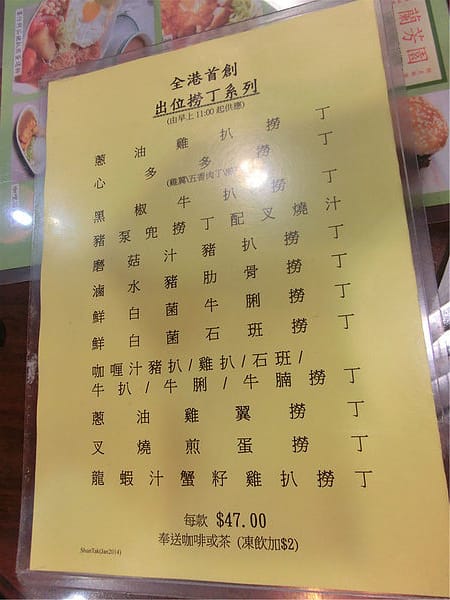 蘭芳園
全港首創
出位撈丁系列
(由早上11:00起供應)
蔥油雞扒撈丁
心多多撈丁
(雞翼\五香肉丁\
黑椒牛扒撈丁
豬泵兜撈丁配叉燒汁
磨菇汁豬扒撈丁
滷水豬肋骨撈丁
鮮白菌牛脷撈丁
鮮白菌石班撈丁
咖喱汁豬扒/雞扒/石班/
牛扒/牛脷/牛腩撈丁
蔥油雞翼撈丁
叉燒煎蛋撈丁
龍蝦汁蟹籽雞扒撈丁
每款 $47.00
奉送咖啡或茶 (凍飲加$2)
ShunTak(Jan2014)